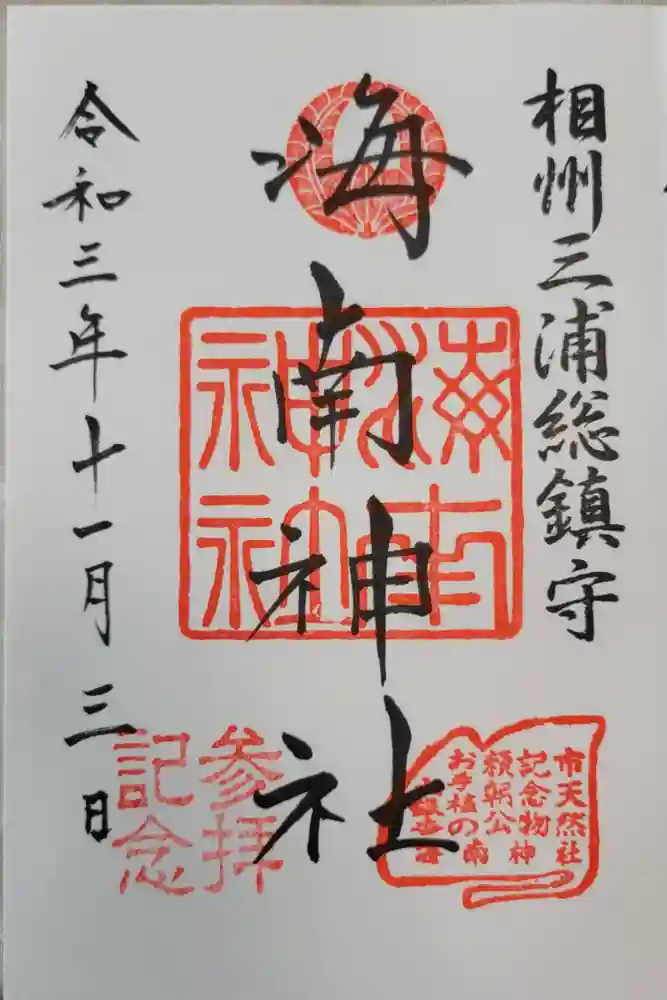 相州三浦総鎮守
海南神社
令和三年十一月三日
海南
神社
参拝
記念
市天然
記念物
頼朝公
お手植の
海南神社